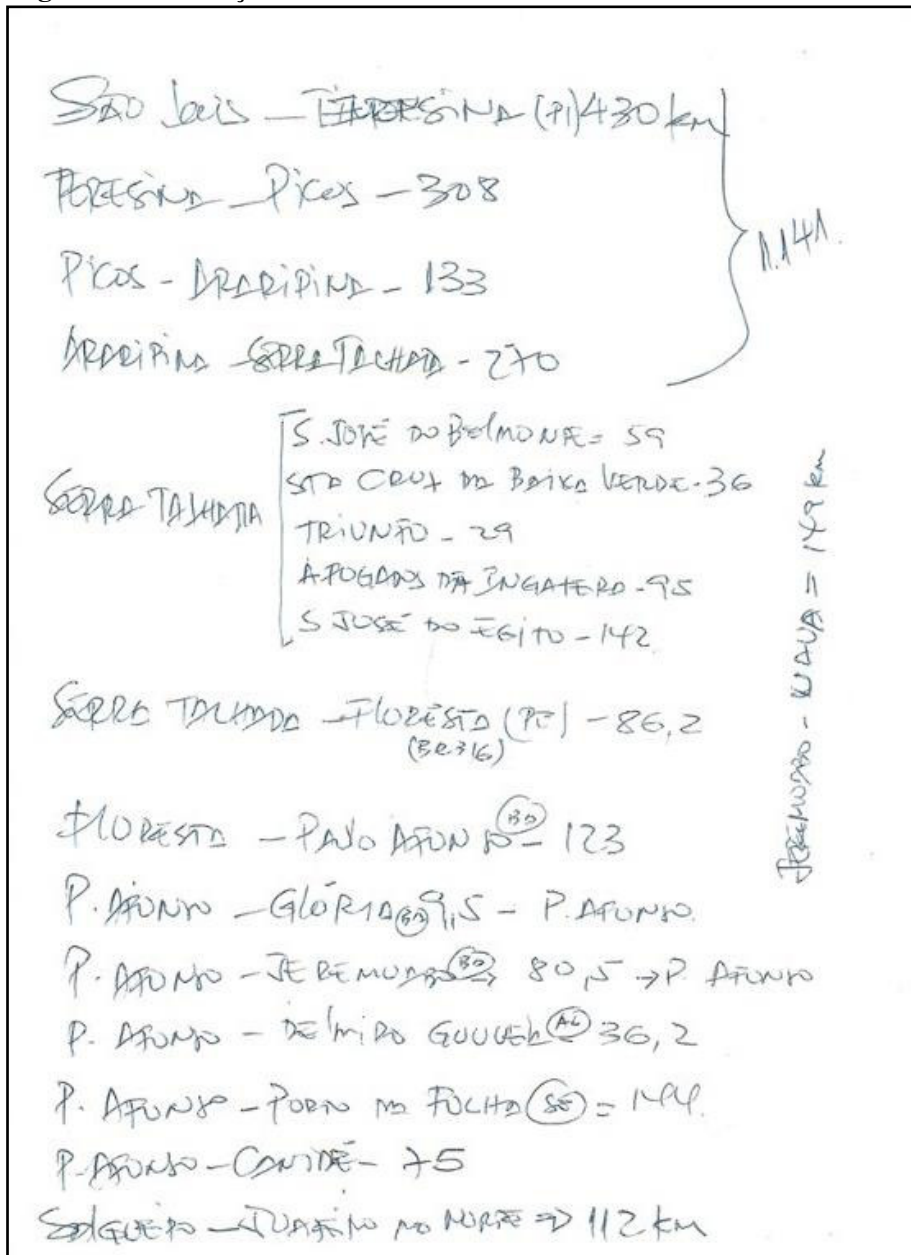 SÃO Luis - TERESINA (PI) 430 km
TERESINA - Picos - 308
Picos - ARARIPINA - 133
ARARIPINA - SERRA TALHADA - 270
1.141.
SERRA TALHADA
S. JOSÉ DO BELMONTE = 59
STA CRUZ DA BAIXA VERDE - 36
TRIUNFO - 29
AFOGADOS DA INGAZEIRA - 95
S JOSÉ DO EGITO - 142
SERRA TALHADA - FLORESTA (PE) - 86,2
(BR 316)
FLORESTA - PAULO AFONSO (BA) - 123
P. AFONSO - GLÓRIA (BA) 9,5 - P. AFONSO.
P. AFONSO - JEREMOABO (BA) => 80,5 → P. AFONSO
P. AFONSO - DELMIRO GOUVEIA (AL) 36,2
P. AFONSO - PORTO DA FOLHA (SE) = 144.
P. AFONSO - CANINDÉ - 75
SALGUEIRO - JUAZEIRO DO NORTE => 112 km
JEREMOABO - UAUÁ = 149 km